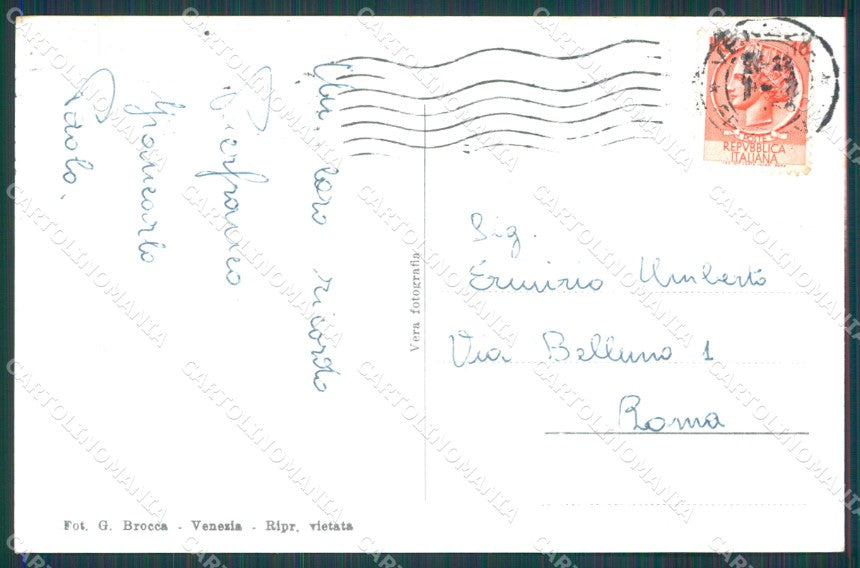 Un caro ricordo
Pierfranco
Giancarlo
Paolo.
Vera fotografia
10
POSTE
REPVBBLICA
ITALIANA
Sig.
Erminio Umberto
Via Belluno 1
Roma
Fot. G. Brocca - Venezia - Ripr. vietata
CARTOLINOMANIA